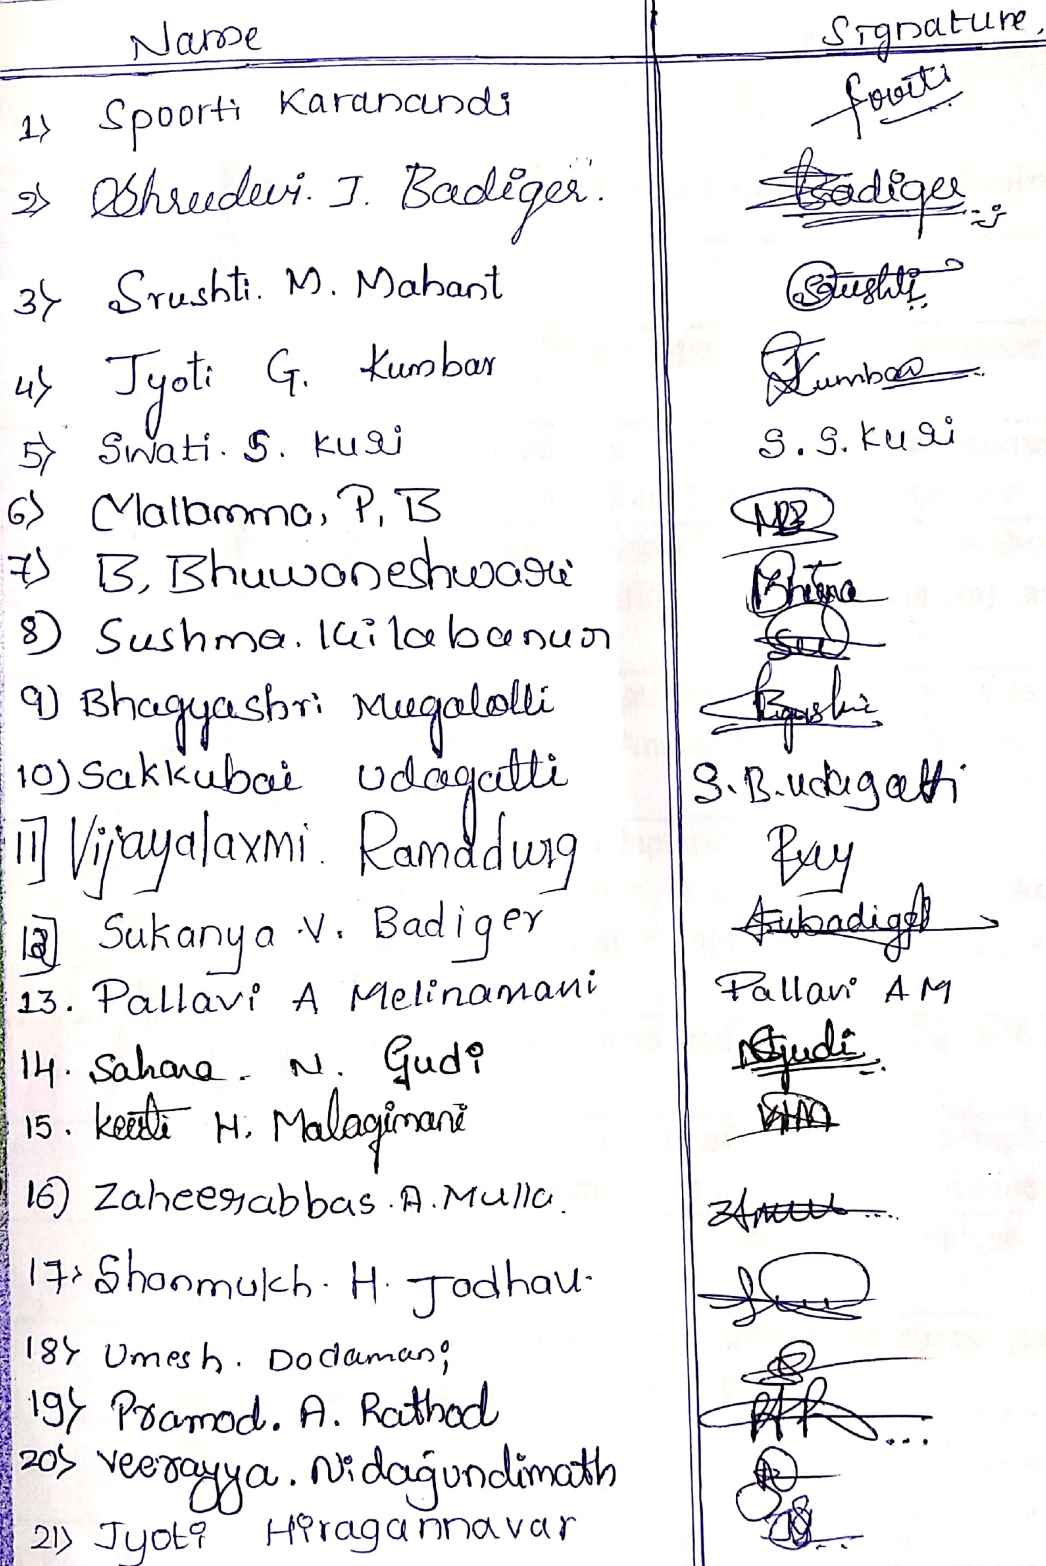 Name Signature,
1) Spoorti Karanandi Spoorti
2) Shreedevi. J. Badiger. Badiger
3) Srushti. M. Mahant Srushti
4) Jyoti G. Kumbar Kumbar
5) Swati. S. Kuri S. S. Kuri
6) Mallamma, P, B MPB
7) B, Bhuwaneshwari
8) Sushma. Kilabanur
9) Bhagyashri Mugalolli
10) Sakkubai Udagatti S. B. Udagatti
11] Vijayalaxmi. Ramddurg
12] Sukanya .V. Badiger Subadiger
13. Pallavi A Melinamani Pallavi AM
14. Sahana. N. Gudi NGudi
15. Keerti H. Malagimani KHM
16) Zaheerabbas. A. Mulla.
17) Shanmukh. H. Jadhav.
18) Umesh. Dodamani
19) Pramod. A. Rathod
20) Veerayya. Nidagundimath
21) Jyoti Hiragannavar